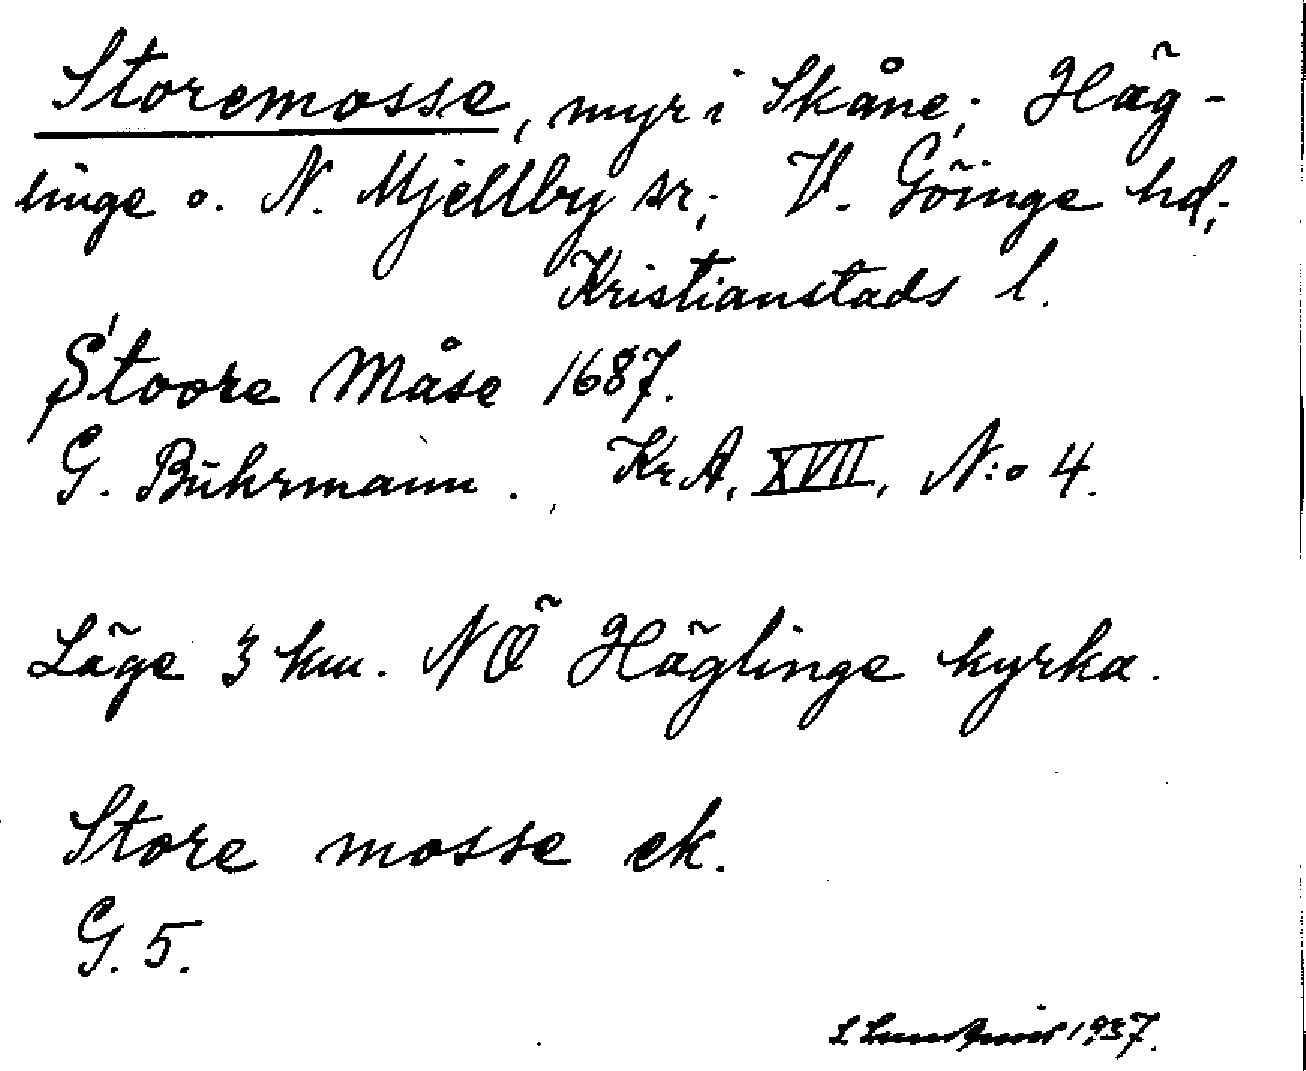 Storemosse, myr i Skåne; Häg-
linge o. N. Mjellby sn; V. Göinge hd;
Kristianstads l.
Stoore Måse 1687.
G. Bührmann. KrA, XVII, N:o 4.
Läge 3 km. NÖ Häglinge kyrka.
Store mosse ek.
G. 5.
1937.